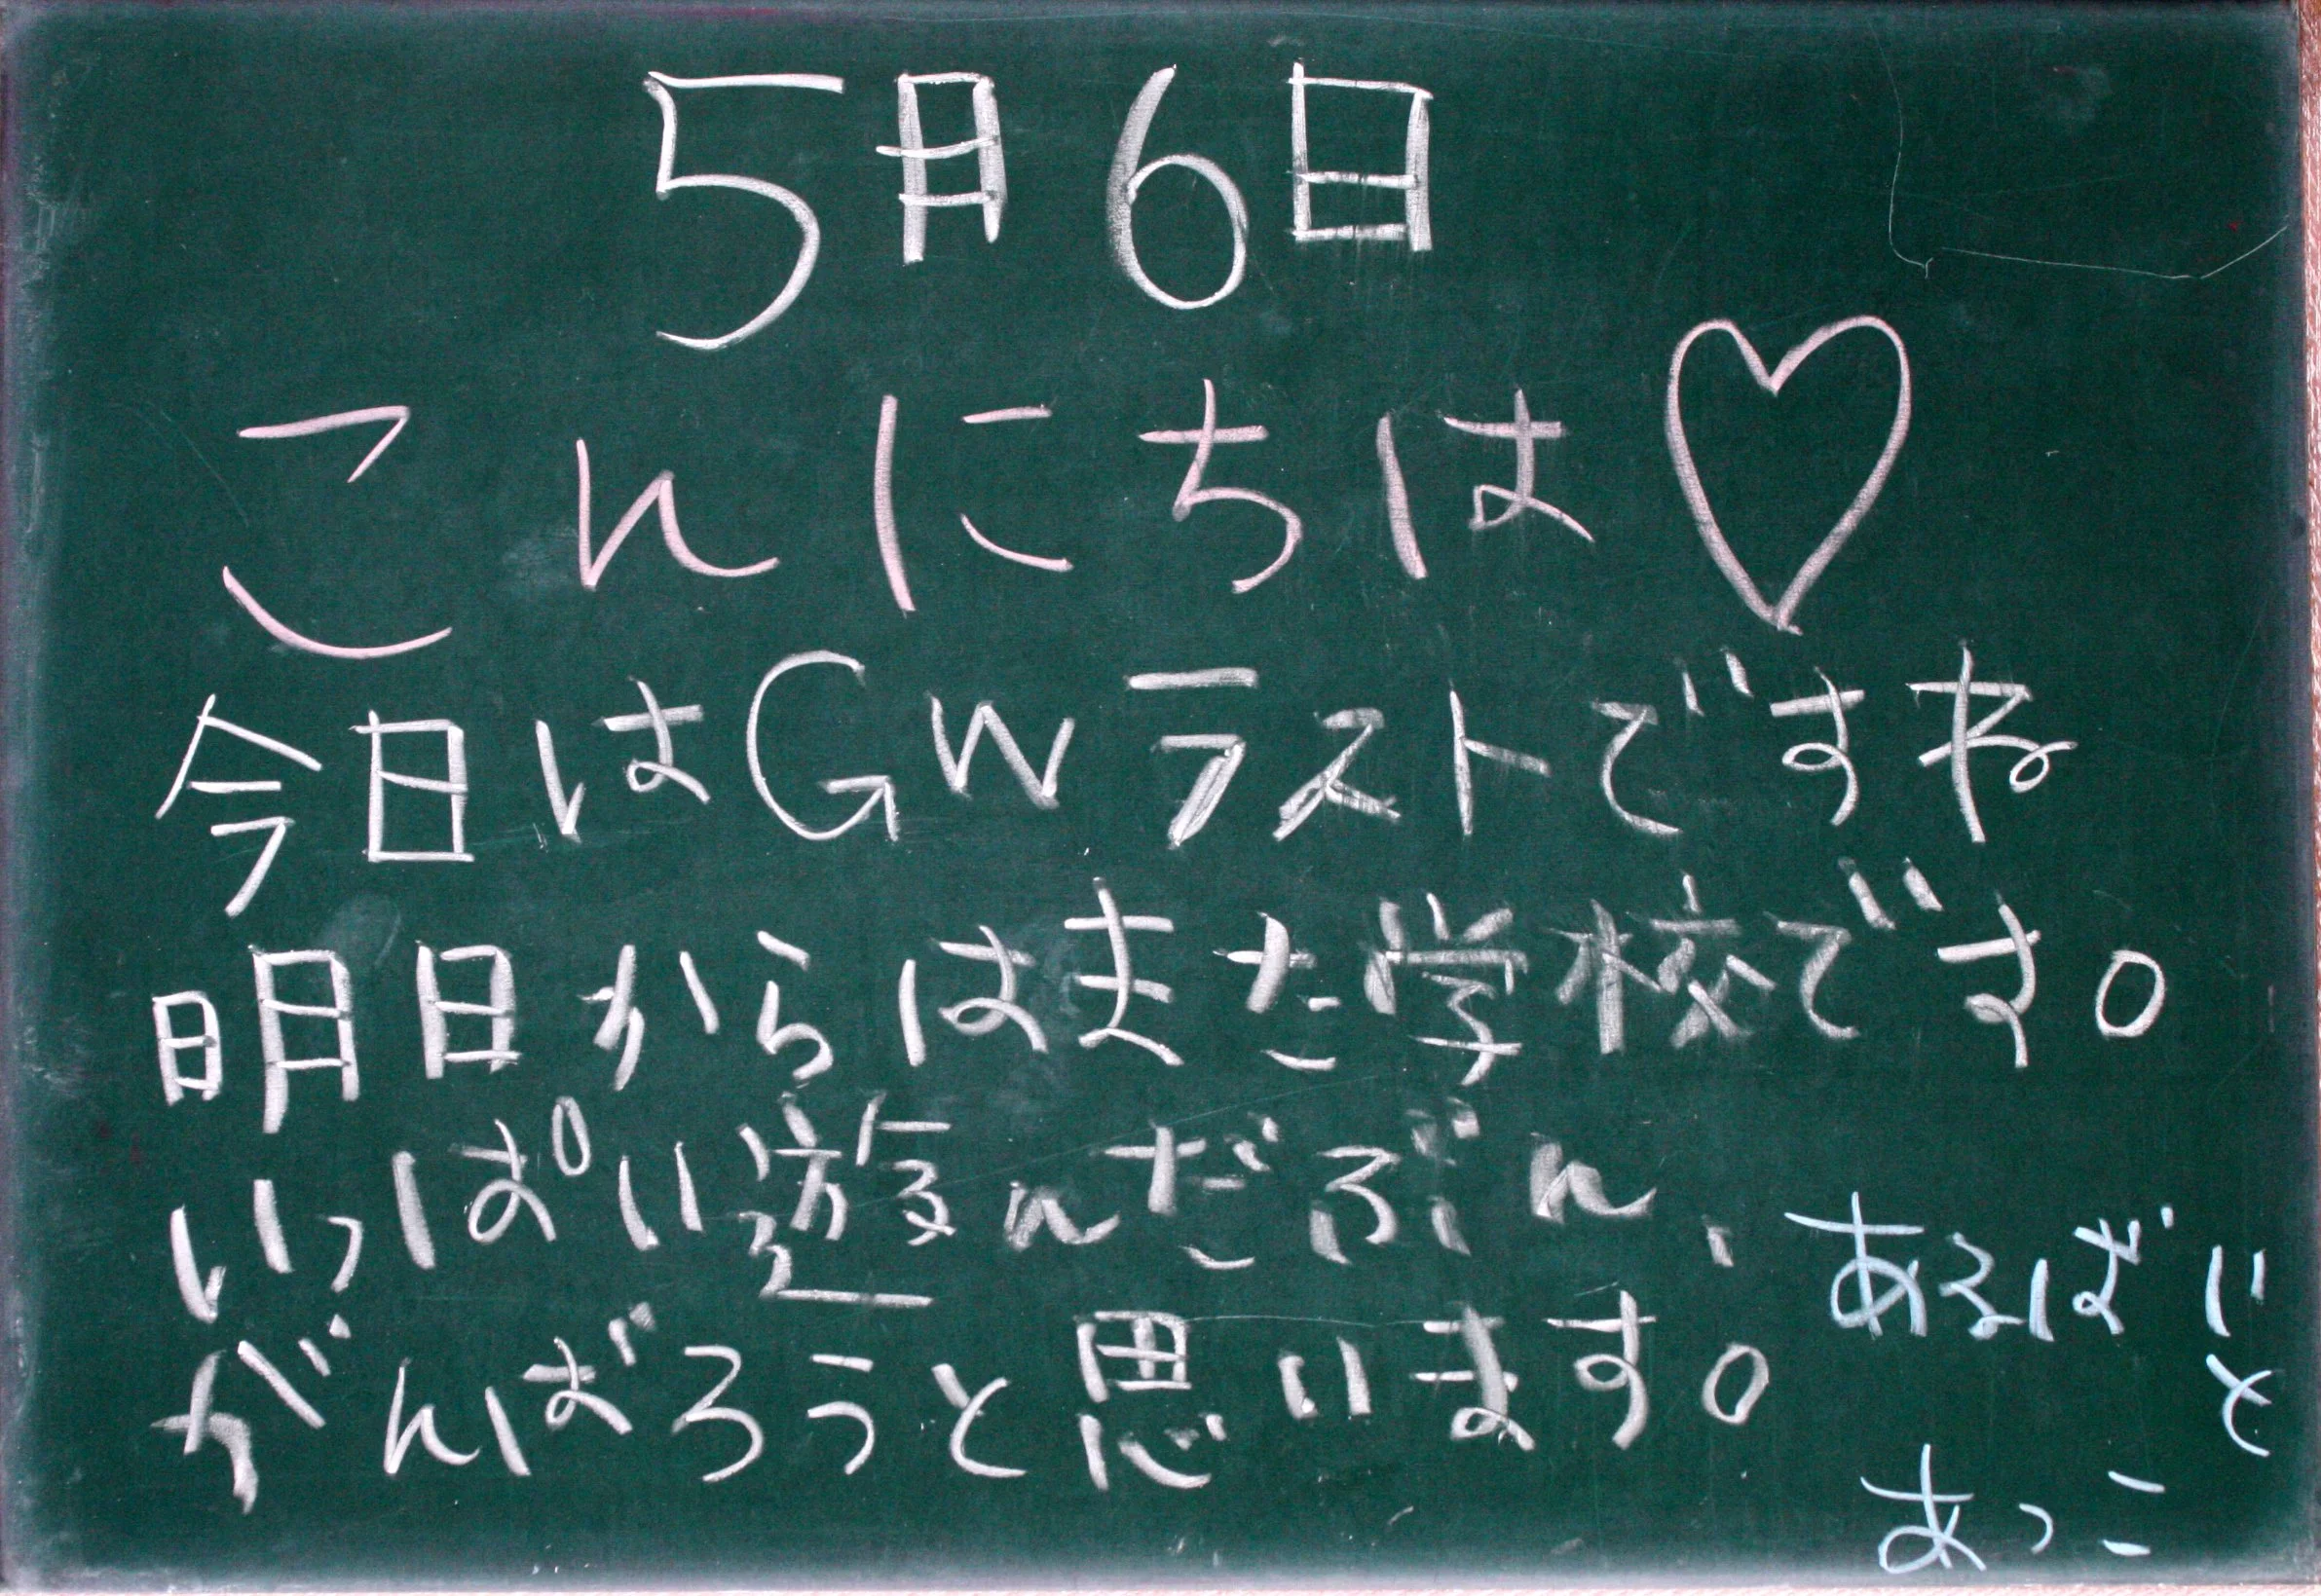 5月6日
こんにちは♡
今日はGWラストですね
明日からはまた学校です。
いっぱい遊んだぶん、
がんばろうと思います。
あるばい
と
あっこ